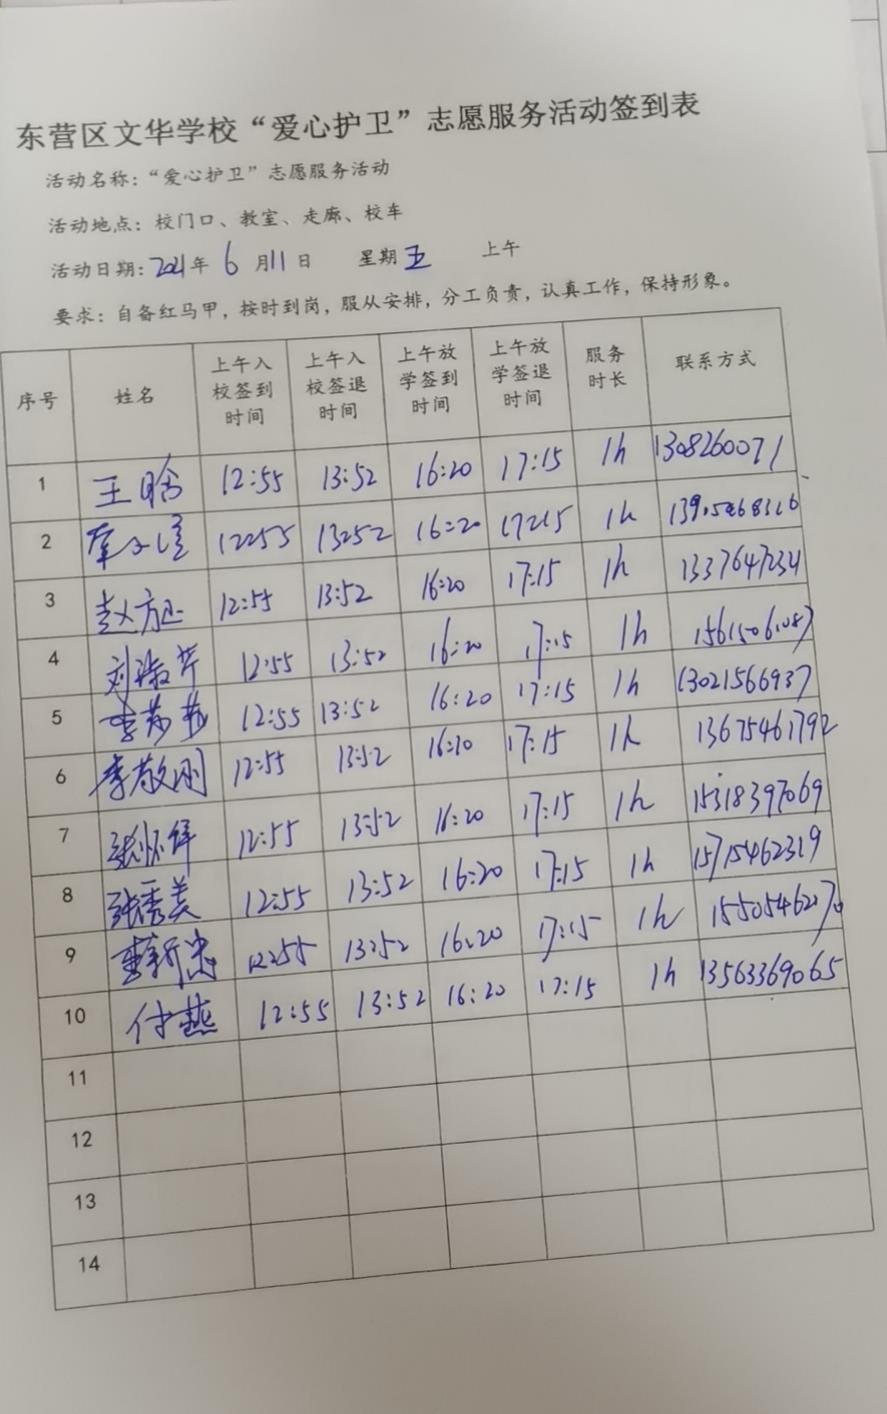 东营区文华学校“爱心护卫”志愿服务活动签到表
活动名称：“爱心护卫”志愿服务活动
活动地点：校门口、教室、走廊、校车
活动日期：2021年 6 月11日 星期 五 上午
要求：自备红马甲，按时到岗，服从安排，分工负责，认真工作，保持形象。
序号 姓名 上午入校签到时间 上午入校签退时间 上午放学签到时间 上午放学签退时间 服务时长 联系方式
1 王晗 12:55 13:52 16:20 17:15 1h 1308260071
2 12:55 13:52 16:20 17:15 1h
3 12:55 13:52 16:20 17:15 1h
4 刘淑芹 12:55 13:52 16:20 17:15 1h
5 12:55 13:52 16:20 17:15 1h 13021566937
6 李敬刚 12:55 13:52 17:15 1h 13675461792
7 12:55 13:52 16:20 17:15 1h 15318397069
8 张秀美 12:55 13:52 16:20 17:15 1h 15715462319
9 12:55 13:52 16:20 17:15 1h
10 付燕 12:55 13:52 16:20 17:15 1h 13563369065
11
12
13
14